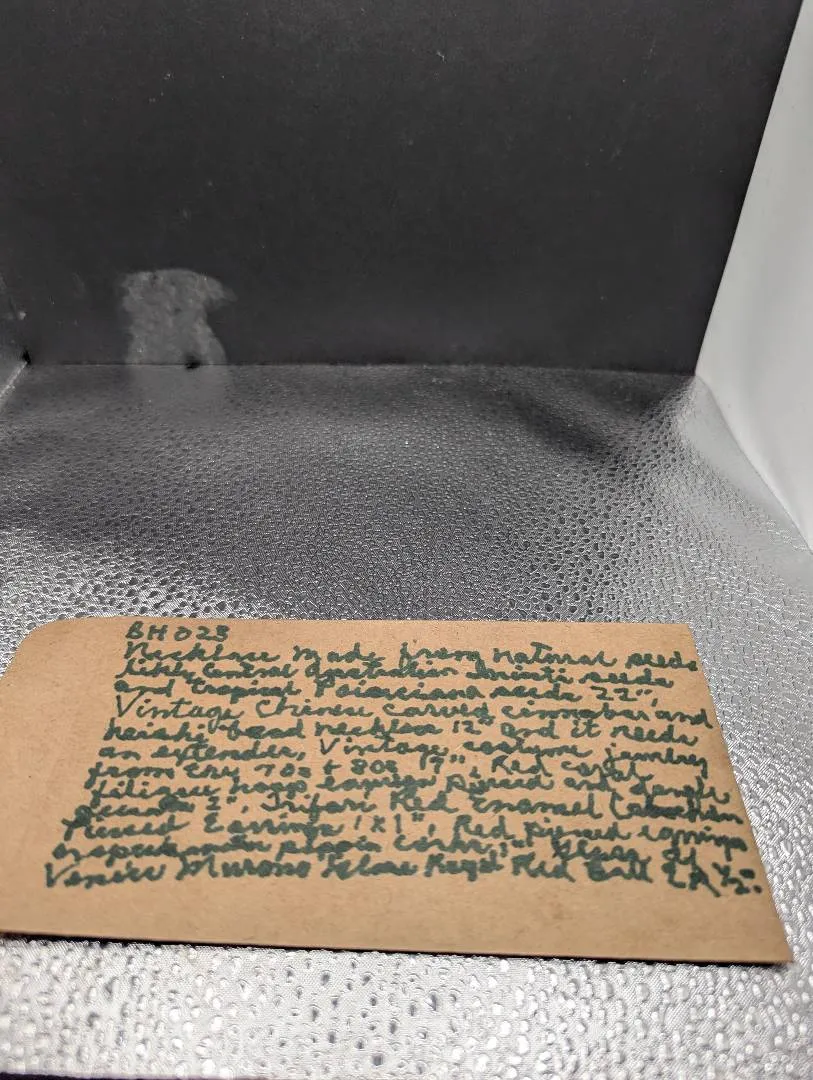 BH 023
Necklace made from natural seeds
likely Central Australian seeds
and tropical Poinciana seeds 22",
Vintage Chinese carved cinnabar and
heishi bead necklace 12" and it needs
an extender, Vintage costume jewelry
from the 70s + 80s 17", Red coral
filigree hoop earrings pierced and dangle
2", Trifari Red Enamel
Pierced Earrings 1x1", Red pierced earrings
Venice Murano Red Ball 1/2".